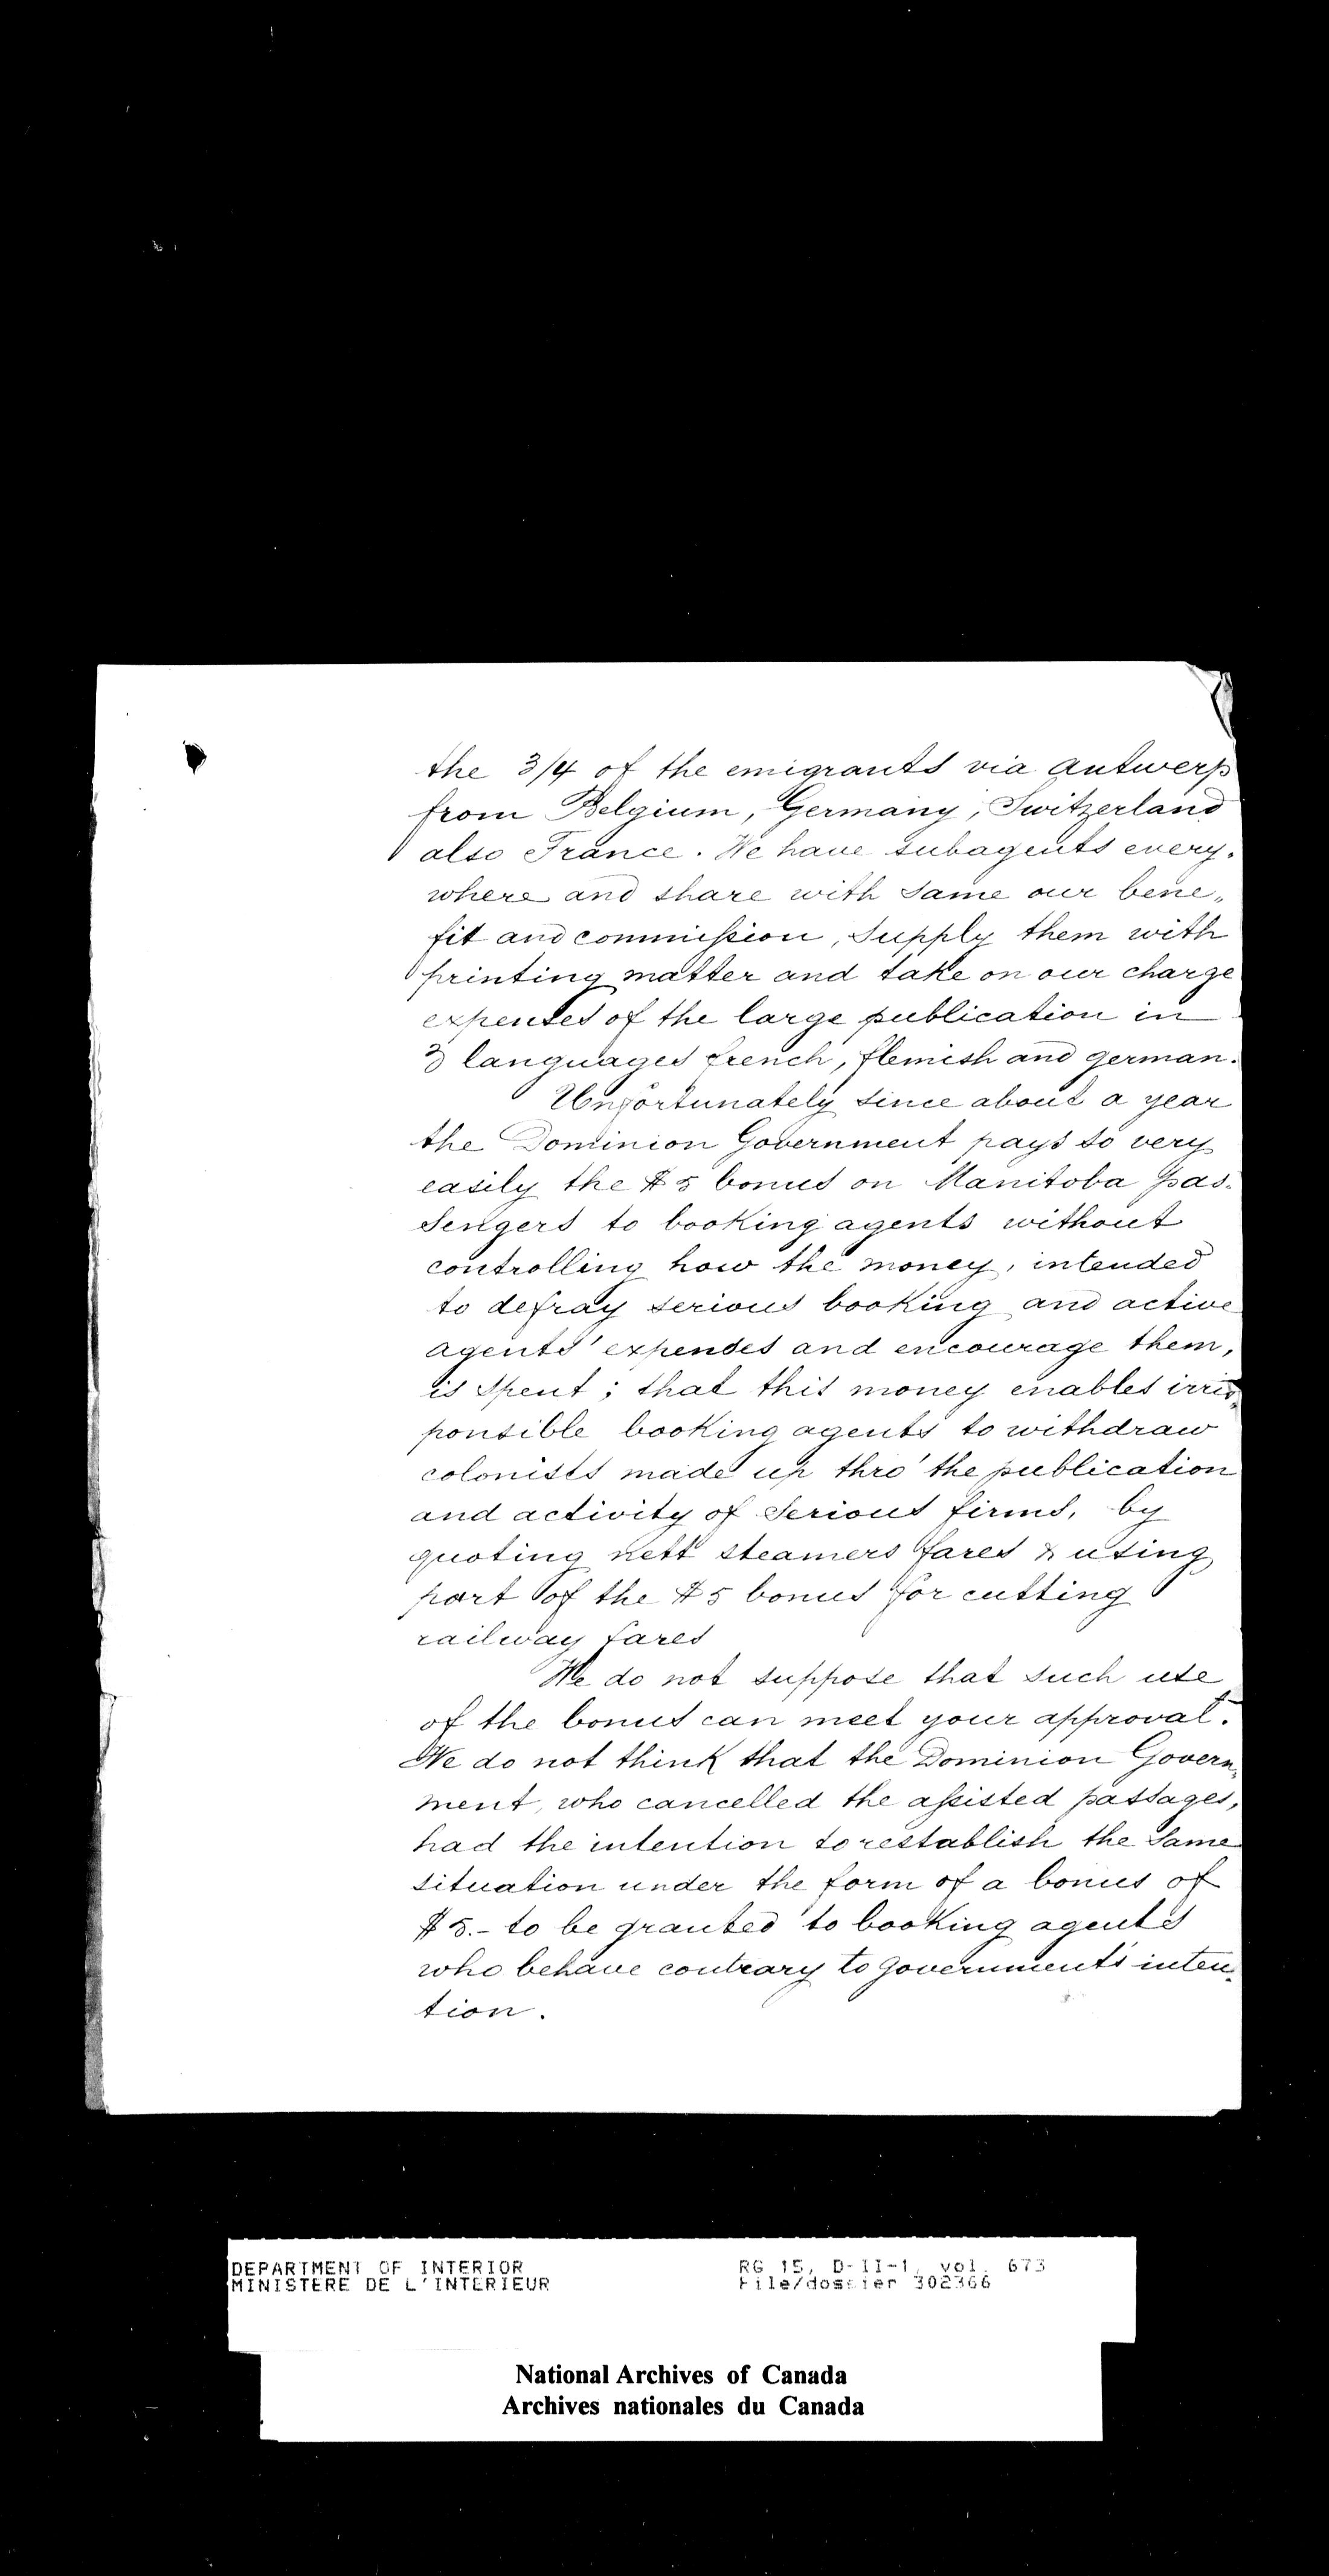 the 3/4 of the emigrants via Antwerp
from Belgium, Germany, Switzerland
also France. We have subagents every-
where and share with same our bene-
fit and commission, supply them with
printing matter and take on our charge
expenses of the large publication in
3 languages french, flemish and german.
Unfortunately since about a year
the Dominion Government pays so very
easily the $5 bonus on Manitoba pas-
sengers to booking agents without
controlling how the money, intended
to defray serious booking and active
agents' expenses and encourage them,
is spent; that this money enables irres-
ponsible booking agents to withdraw
colonists made up thro' the publication
and activity of serious firms, by
quoting nett steamers fares & using
part of the $5 bonus for cutting
railway fares
We do not suppose that such use
of the bonus can meet your approval.-
We do not think that the Dominion Govern-
ment, who cancelled the assisted passages,
had the intention to restablish the same
situation under the form of a bonus of
$5.- to be granted to booking agents
who behave contrary to governments' inten-
tion.
DEPARTMENT OF INTERIOR
MINISTERE DE L'INTERIEUR
RG 15, D-II-1, vol. 673
File/dossier 302366
National Archives of Canada
Archives nationales du Canada